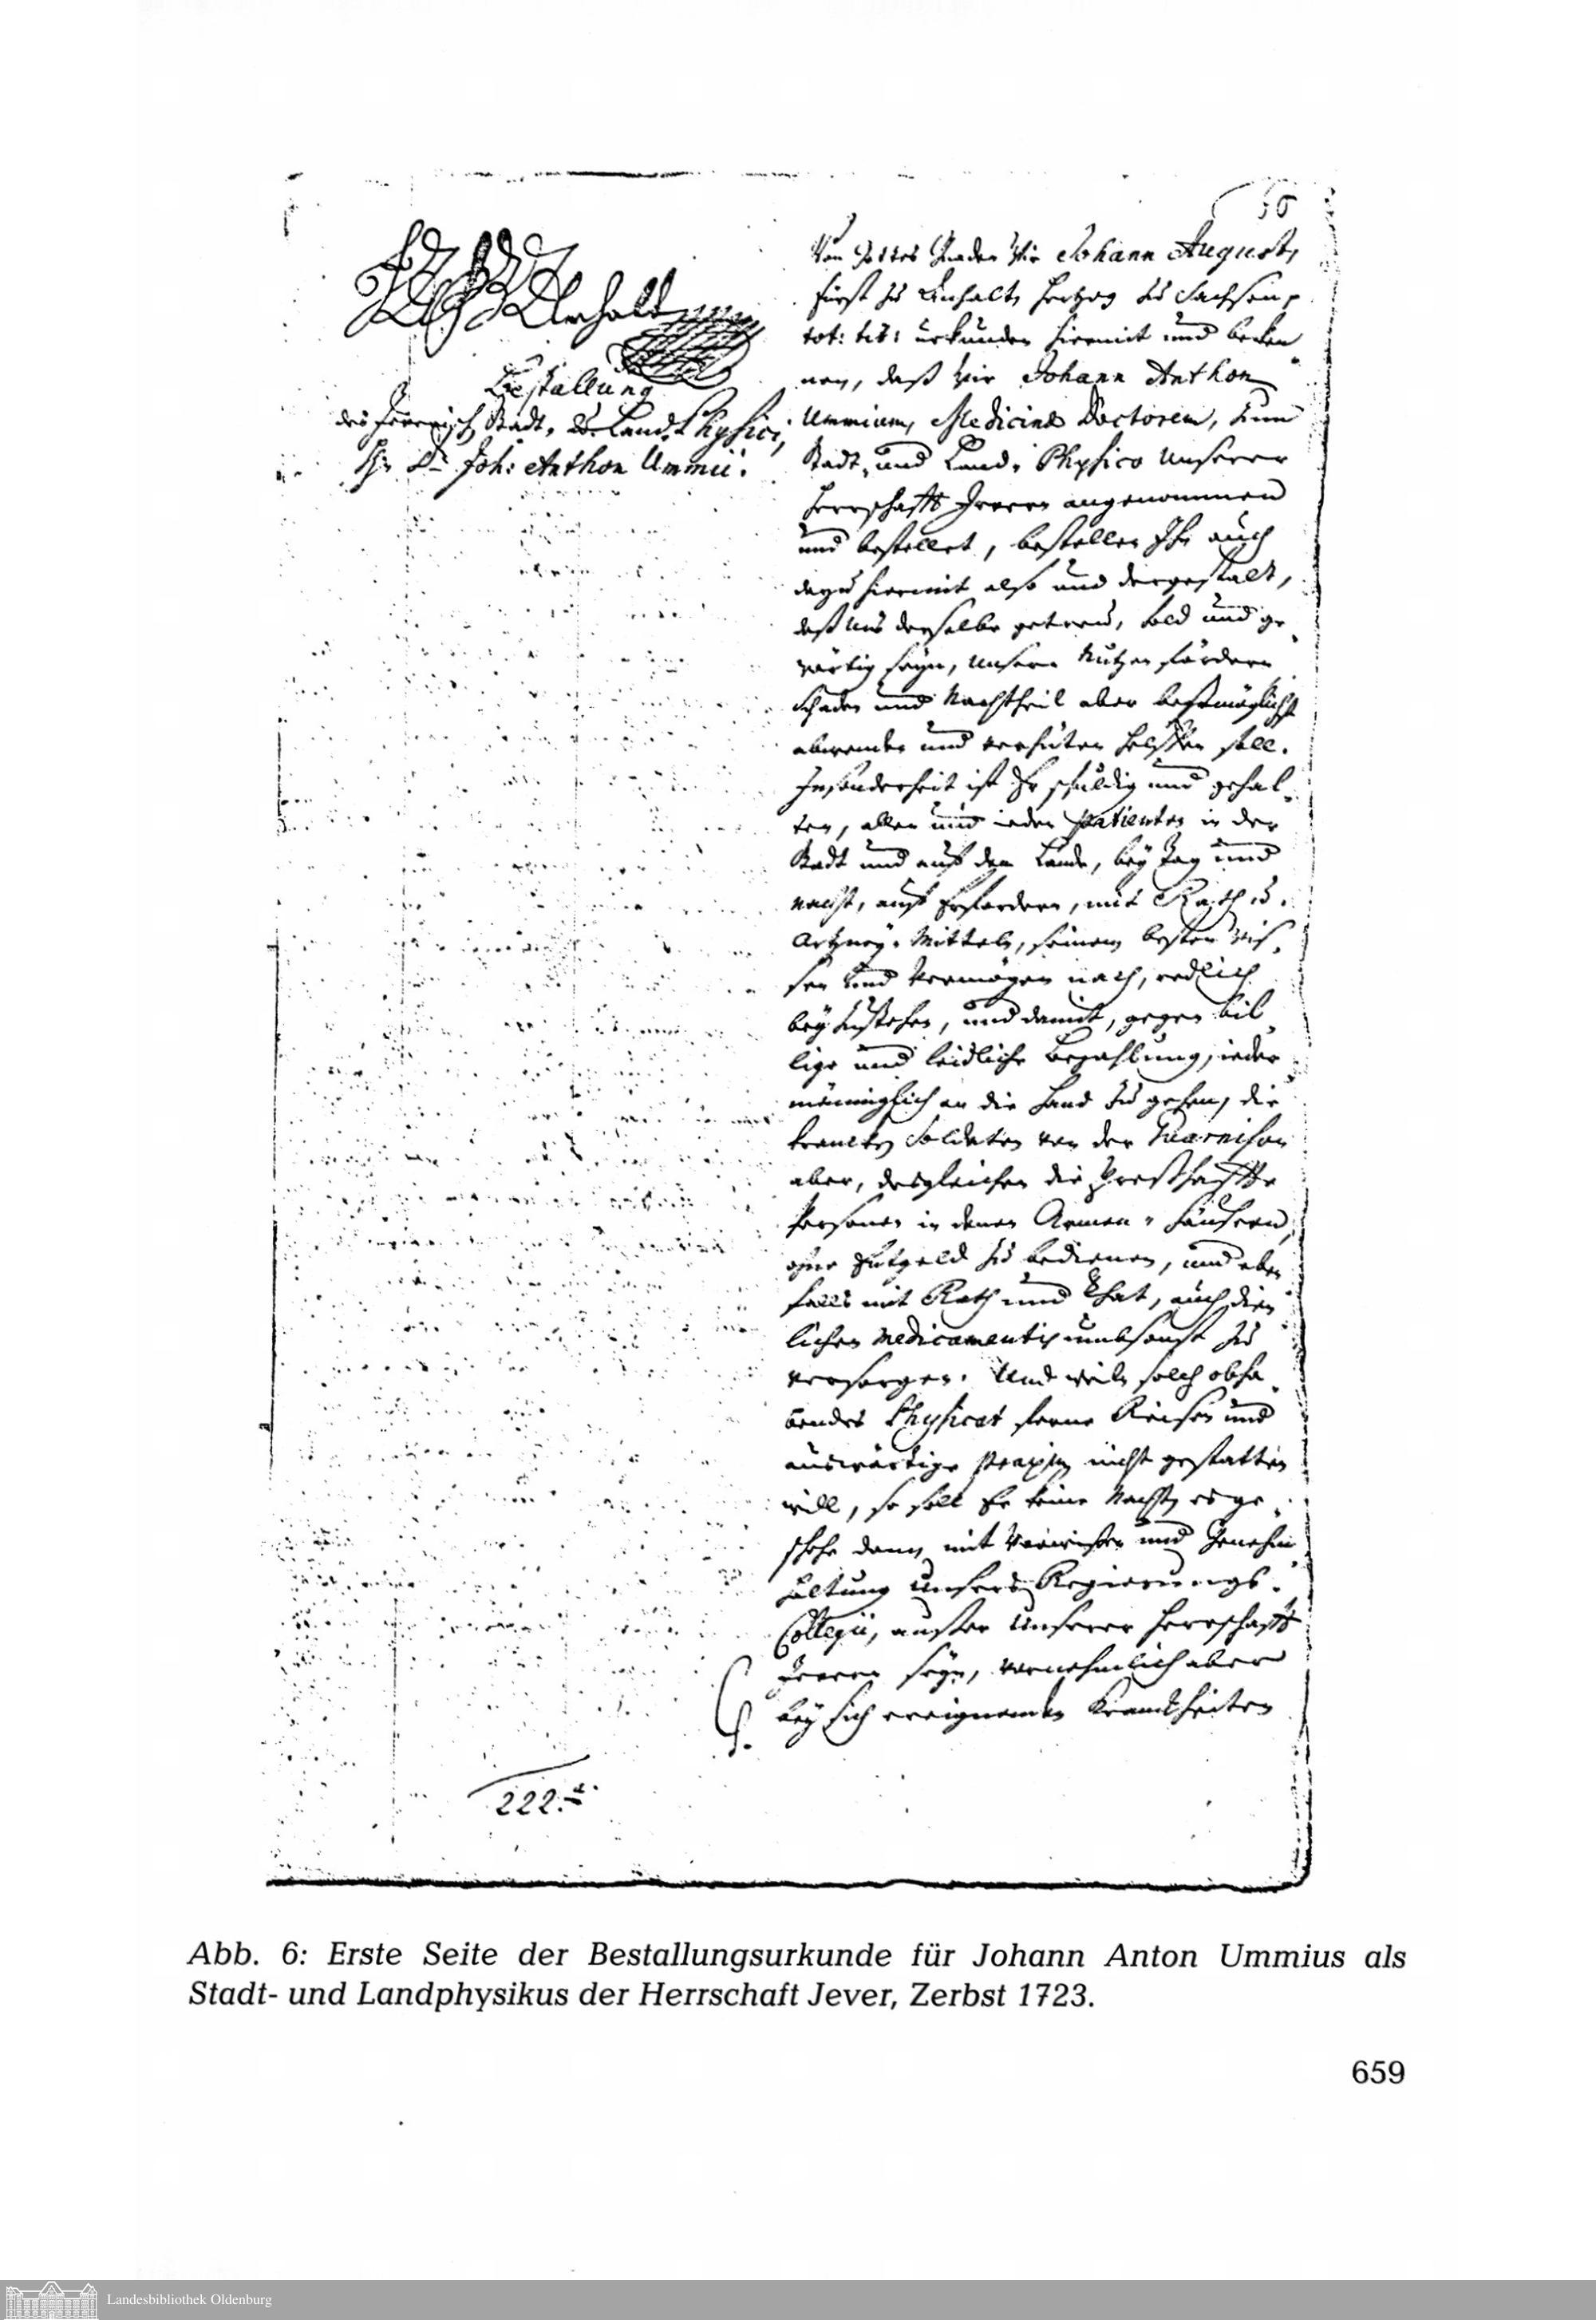 56
Von Gottes Gnaden Wir Johann August,
Fürst zu Anhalt, Hertzog zu Sachsen,
tot: tit: urkunden hiermit und beken
nen, daß Wir Johann Anthon
Ummium, Medicinæ Doctorem, zum
Stadt- und Land-Physico Unserer
Herrschafft Jevern angenommen
und bestellet, bestellen Ihn auch
dazu hiermit also und dergestalt,
daß Uns derselbe getreu, hold und ge
wärtig seyn, Unsern Nutzen fördern
Schaden und Nachtheil aber bestmöglichst
abwenden und verhüten helffen soll.
Insonderheit ist Er schuldig und gehal-
ten, allen und ieden Patienten in der
Stadt und auf dem Lande, bey Tag und
Nacht, auf Erfordern, mit Rath u.
Artzney-Mitteln, seinem besten Wis-
sen und Vermögen nach, redlich
beyzustehen, und damit, gegen bil
lige und leidliche Bezahlung, ieder
männiglich an die Hand zu gehen, die
krancken Soldaten von der Guarnison
aber, desgleichen die Presthaffte
Personen in denen Armen-Häusern,
ohne Entgeld zu bedienen, und eben
falls mit Rath und That, auch dien
lichen Medicamentis umbsonst zu
versorgen. Und weiln solch obha
bendes Physicat ferne Reisen und
auswärtige Praxin nicht gestatten
will, so soll Er keine Nacht, es ge
schehe dann mit Vorwißen und Genehm
haltung Unsers Regierungs-
Collegii, außer Unserer Herrschafft
Jevern seyn, vornehmlich aber
bey sich ereignenden Kranckheiten
Anhalt
Bestallung
des Jeverisch. Stadt- u. Land-Physici,
Hr. Dr. Joh: Anthon Ummii.
222.
Abb. 6: Erste Seite der Bestallungsurkunde für Johann Anton Ummius als
Stadt- und Landphysikus der Herrschaft Jever, Zerbst 1723.
659
Landesbibliothek Oldenburg